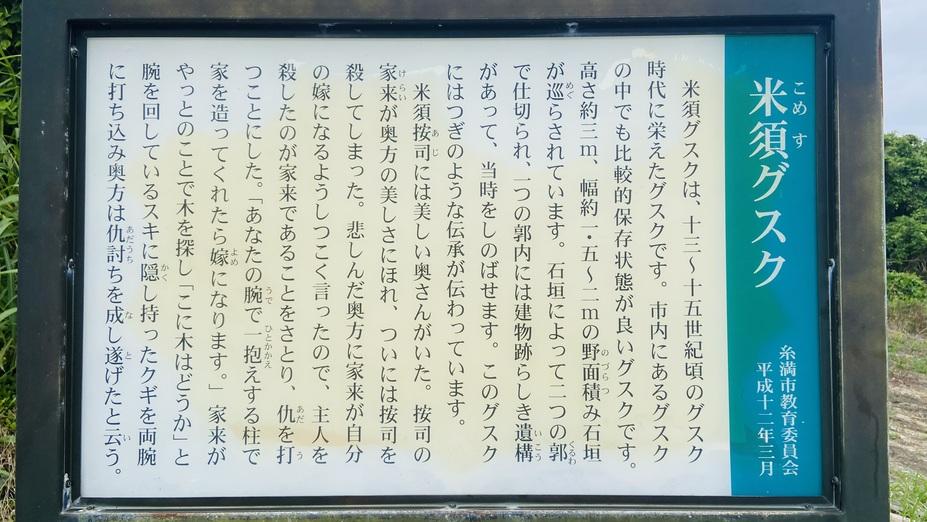 米須グスク
糸満市教育委員会
平成十二年三月
米須グスクは、十三〜十五世紀頃のグスク
時代に栄えたグスクです。市内にあるグスク
の中でも比較的保存状態が良いグスクです。
高さ約三m、幅約一・五〜二mの野面積み石垣
が巡らされています。石垣によって二つの郭
で仕切られ、一つの郭内には建物跡らしき遺構
があって、当時をしのばせます。このグスク
にはつぎのような伝承が伝わっています。
米須按司には美しい奥さんがいた。按司の
家来が奥方の美しさにほれ、ついには按司を
殺してしまった。悲しんだ奥方に家来が自分
の嫁になるようしつこく言ったので、主人を
殺したのが家来であることをさとり、仇を打
つことにした。「あなたの腕で一抱えする柱で
家を造ってくれたら嫁になります。」家来が
やっとのことで木を探し「こに木はどうか」と
腕を回しているスキに隠し持ったクギを両腕
に打ち込み奥方は仇討ちを成し遂げたと云う。